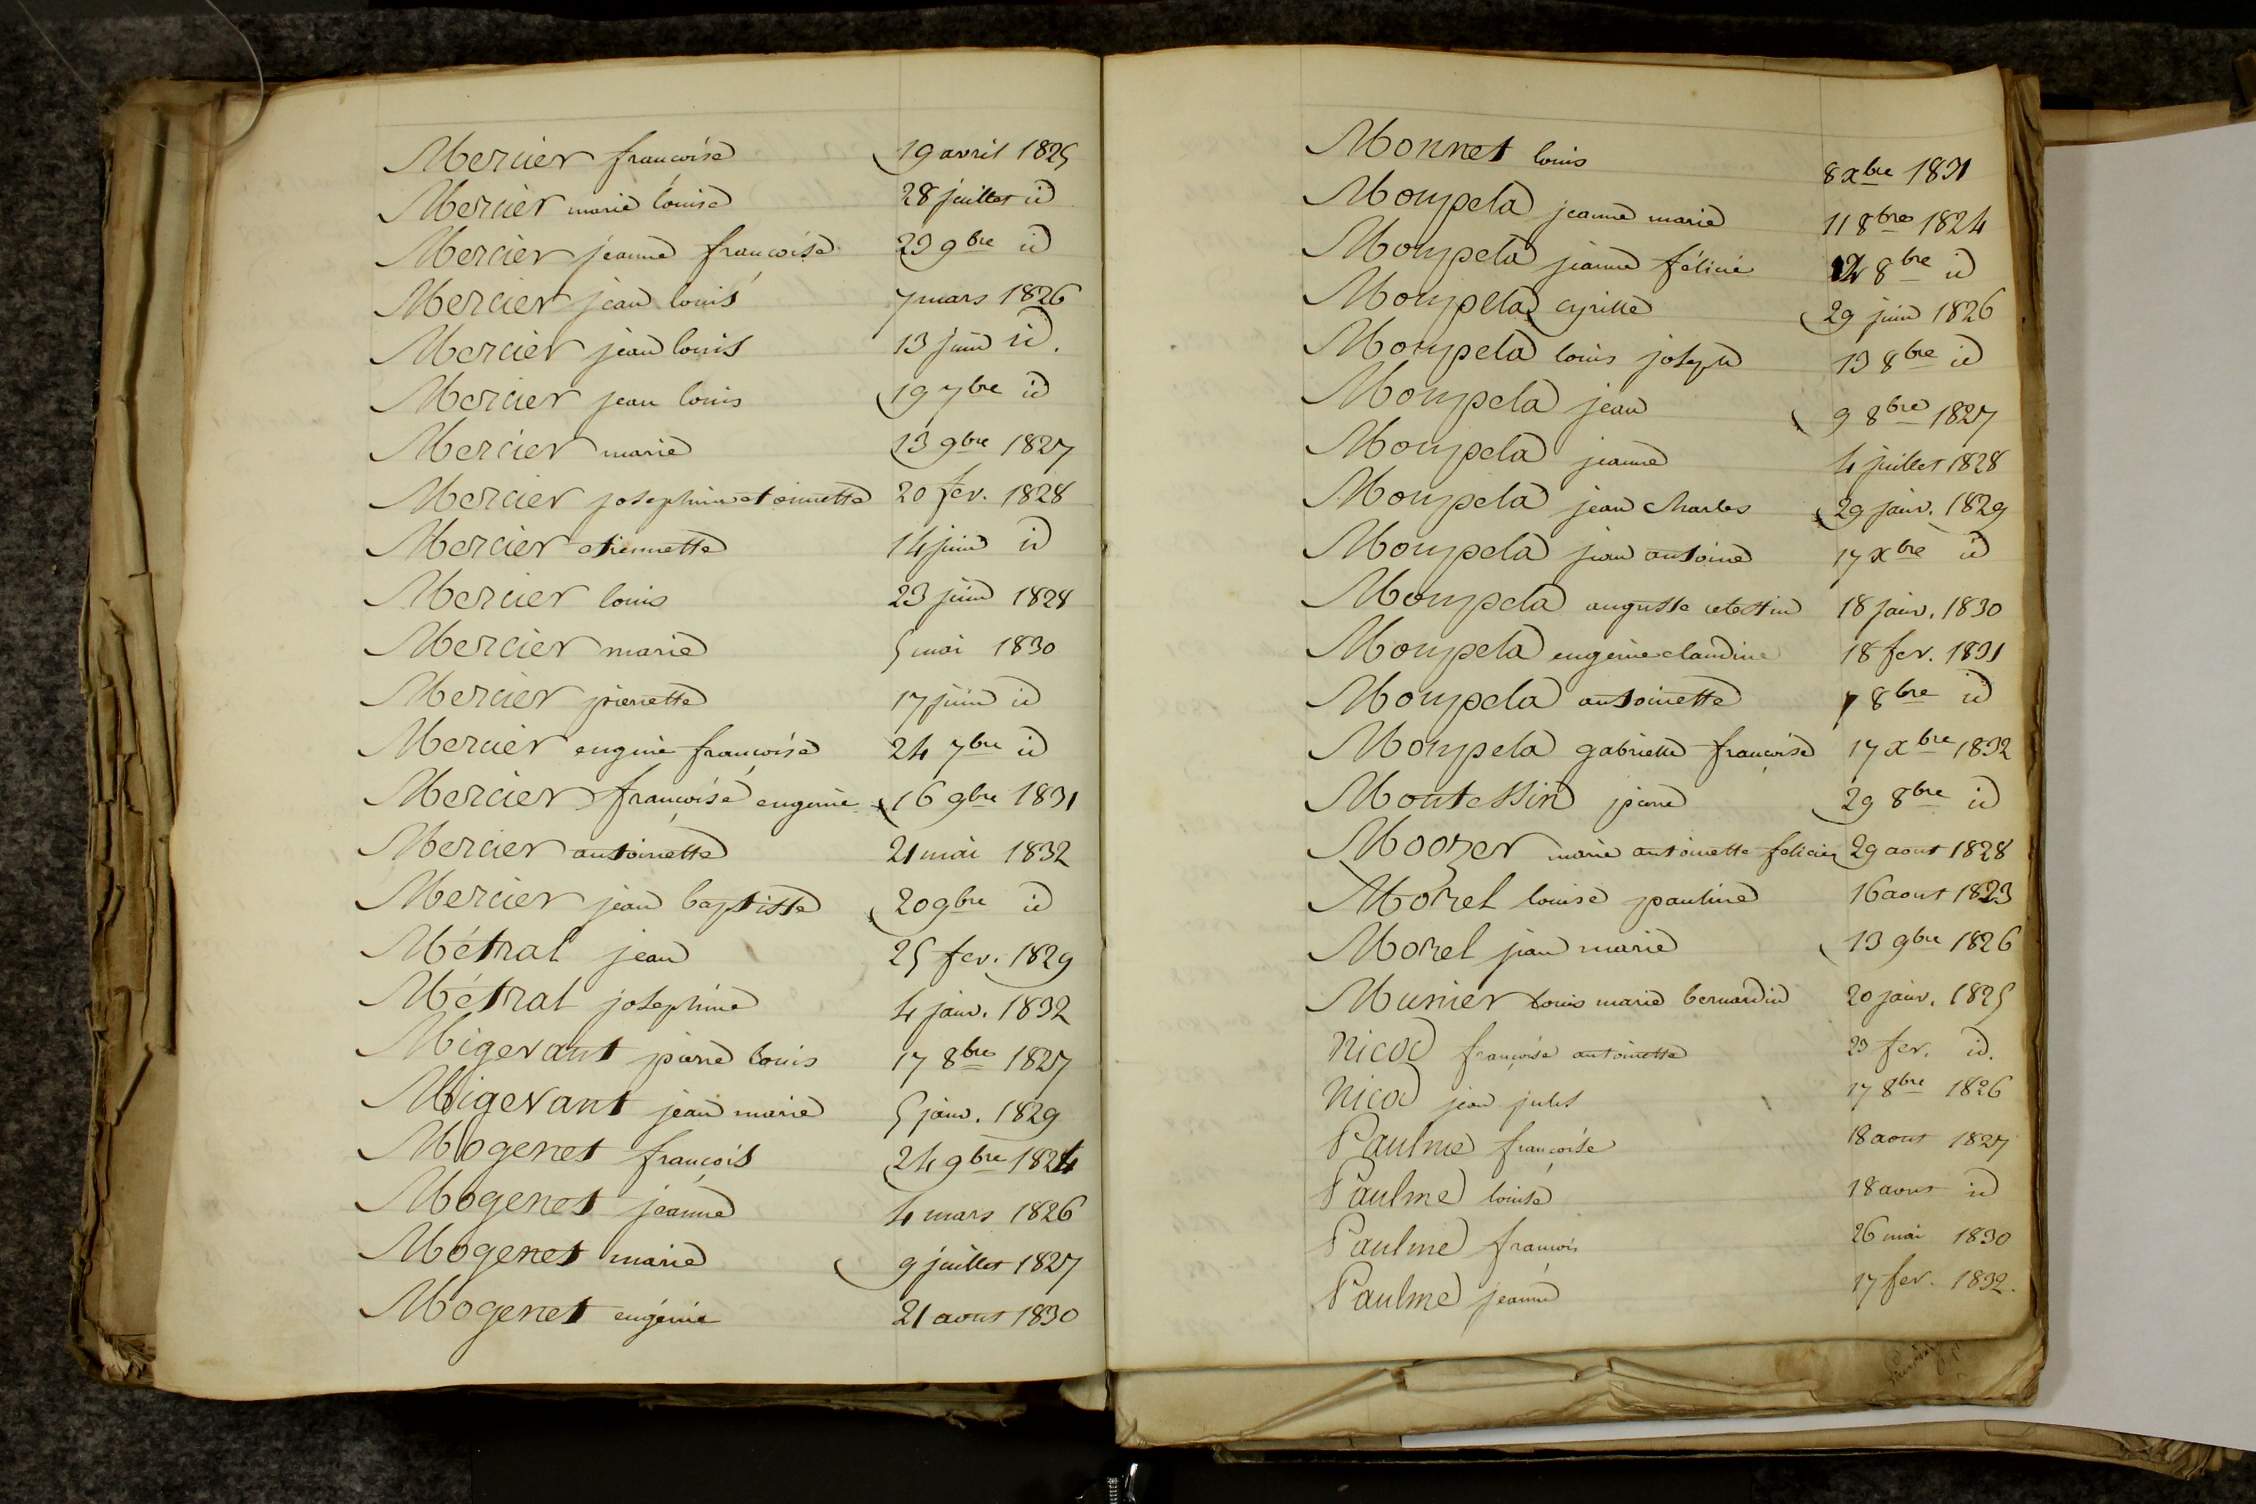 Mercier françoise 19 avril 1825
Mercier marie louise 28 juillet id
Mercier jeanne françoise 23 9bre id
Mercier jean louis 7 mars 1826
Mercier jean louis 13 juin id.
Mercier jean louis 19 7bre id
Mercier marie 13 9bre 1827
Mercier josephine etiennette 20 fev. 1828
Mercier etiennette 14 juin id
Mercier louis 23 juin 1828
Mercier marie 5 mai 1830
Mercier pierrette 17 juin id
Mercier eugenie françoise 24 7bre id
Mercier françoise eugenie 16 9bre 1831
Mercier antoinette 21 mai 1832
Mercier jean baptiste 20 9bre id
Métral jean 25 fev. 1829
Métral josephine 4 janv. 1832
Migevant pierre louis 17 8bre 1827
Migevant jean marie 5 janv. 1829
Mogenet françois 24 9bre 1824
Mogenet jeanne 4 mars 1826
Mogenet marie 9 juillet 1827
Mogenet eugénie 21 aout 1830
Monnet louis 8 xbre 1831
Monpela jeanne marie 11 8bre 1824
Monpela jeanne félicié 12 8bre id
Monpela cyrille 29 juin 1826
Monpela louis joseph 13 8bre id
Monpela jean 9 8bre 1827
Monpela jeanne 4 juillet 1828
Monpela jean charles 29 janv. 1829
Monpela jean antoine 17 xbre id
Monpela auguste celestin 18 janv. 1830
Monpela eugenie claudine 18 fev. 1831
Monpela antoinette 7 8bre id
Monpela gabrielle françoise 17 xbre 1832
Montessin pierre 29 8bre id
Moozer marie antoinette felicien 29 aout 1828
Morel louise pauline 16 aout 1823
Morel jean marie 13 9bre 1826
Munier louis marie bernardin 20 janv. 1825
Nicod françoise antoinette 23 fev. id.
Nicod jean jules 17 8bre 1826
Paulme françoise 18 aout 1827
Paulme louise 18 aout id
Paulme françois 26 mai 1830
Paulme jeanne 17 fev. 1832.